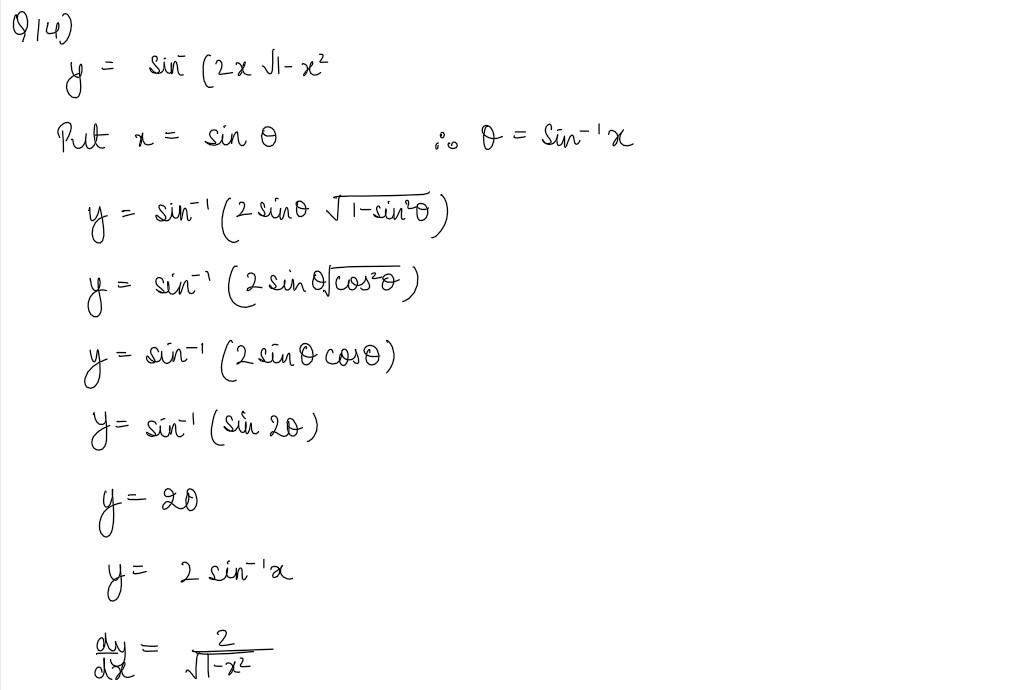 Q14)
y = sin⁻ (2x √1-x²
Put x = sin θ ∴ θ = sin⁻¹x
y = sin⁻¹ (2 sinθ √1-sin²θ)
y = sin⁻¹ (2 sin θ√cos²θ)
y = sin⁻¹ (2 sin θ cosθ)
y = sin⁻¹ (sin 2θ)
y = 2θ
y = 2 sin⁻¹x
dy/dx = 2/√1-x²